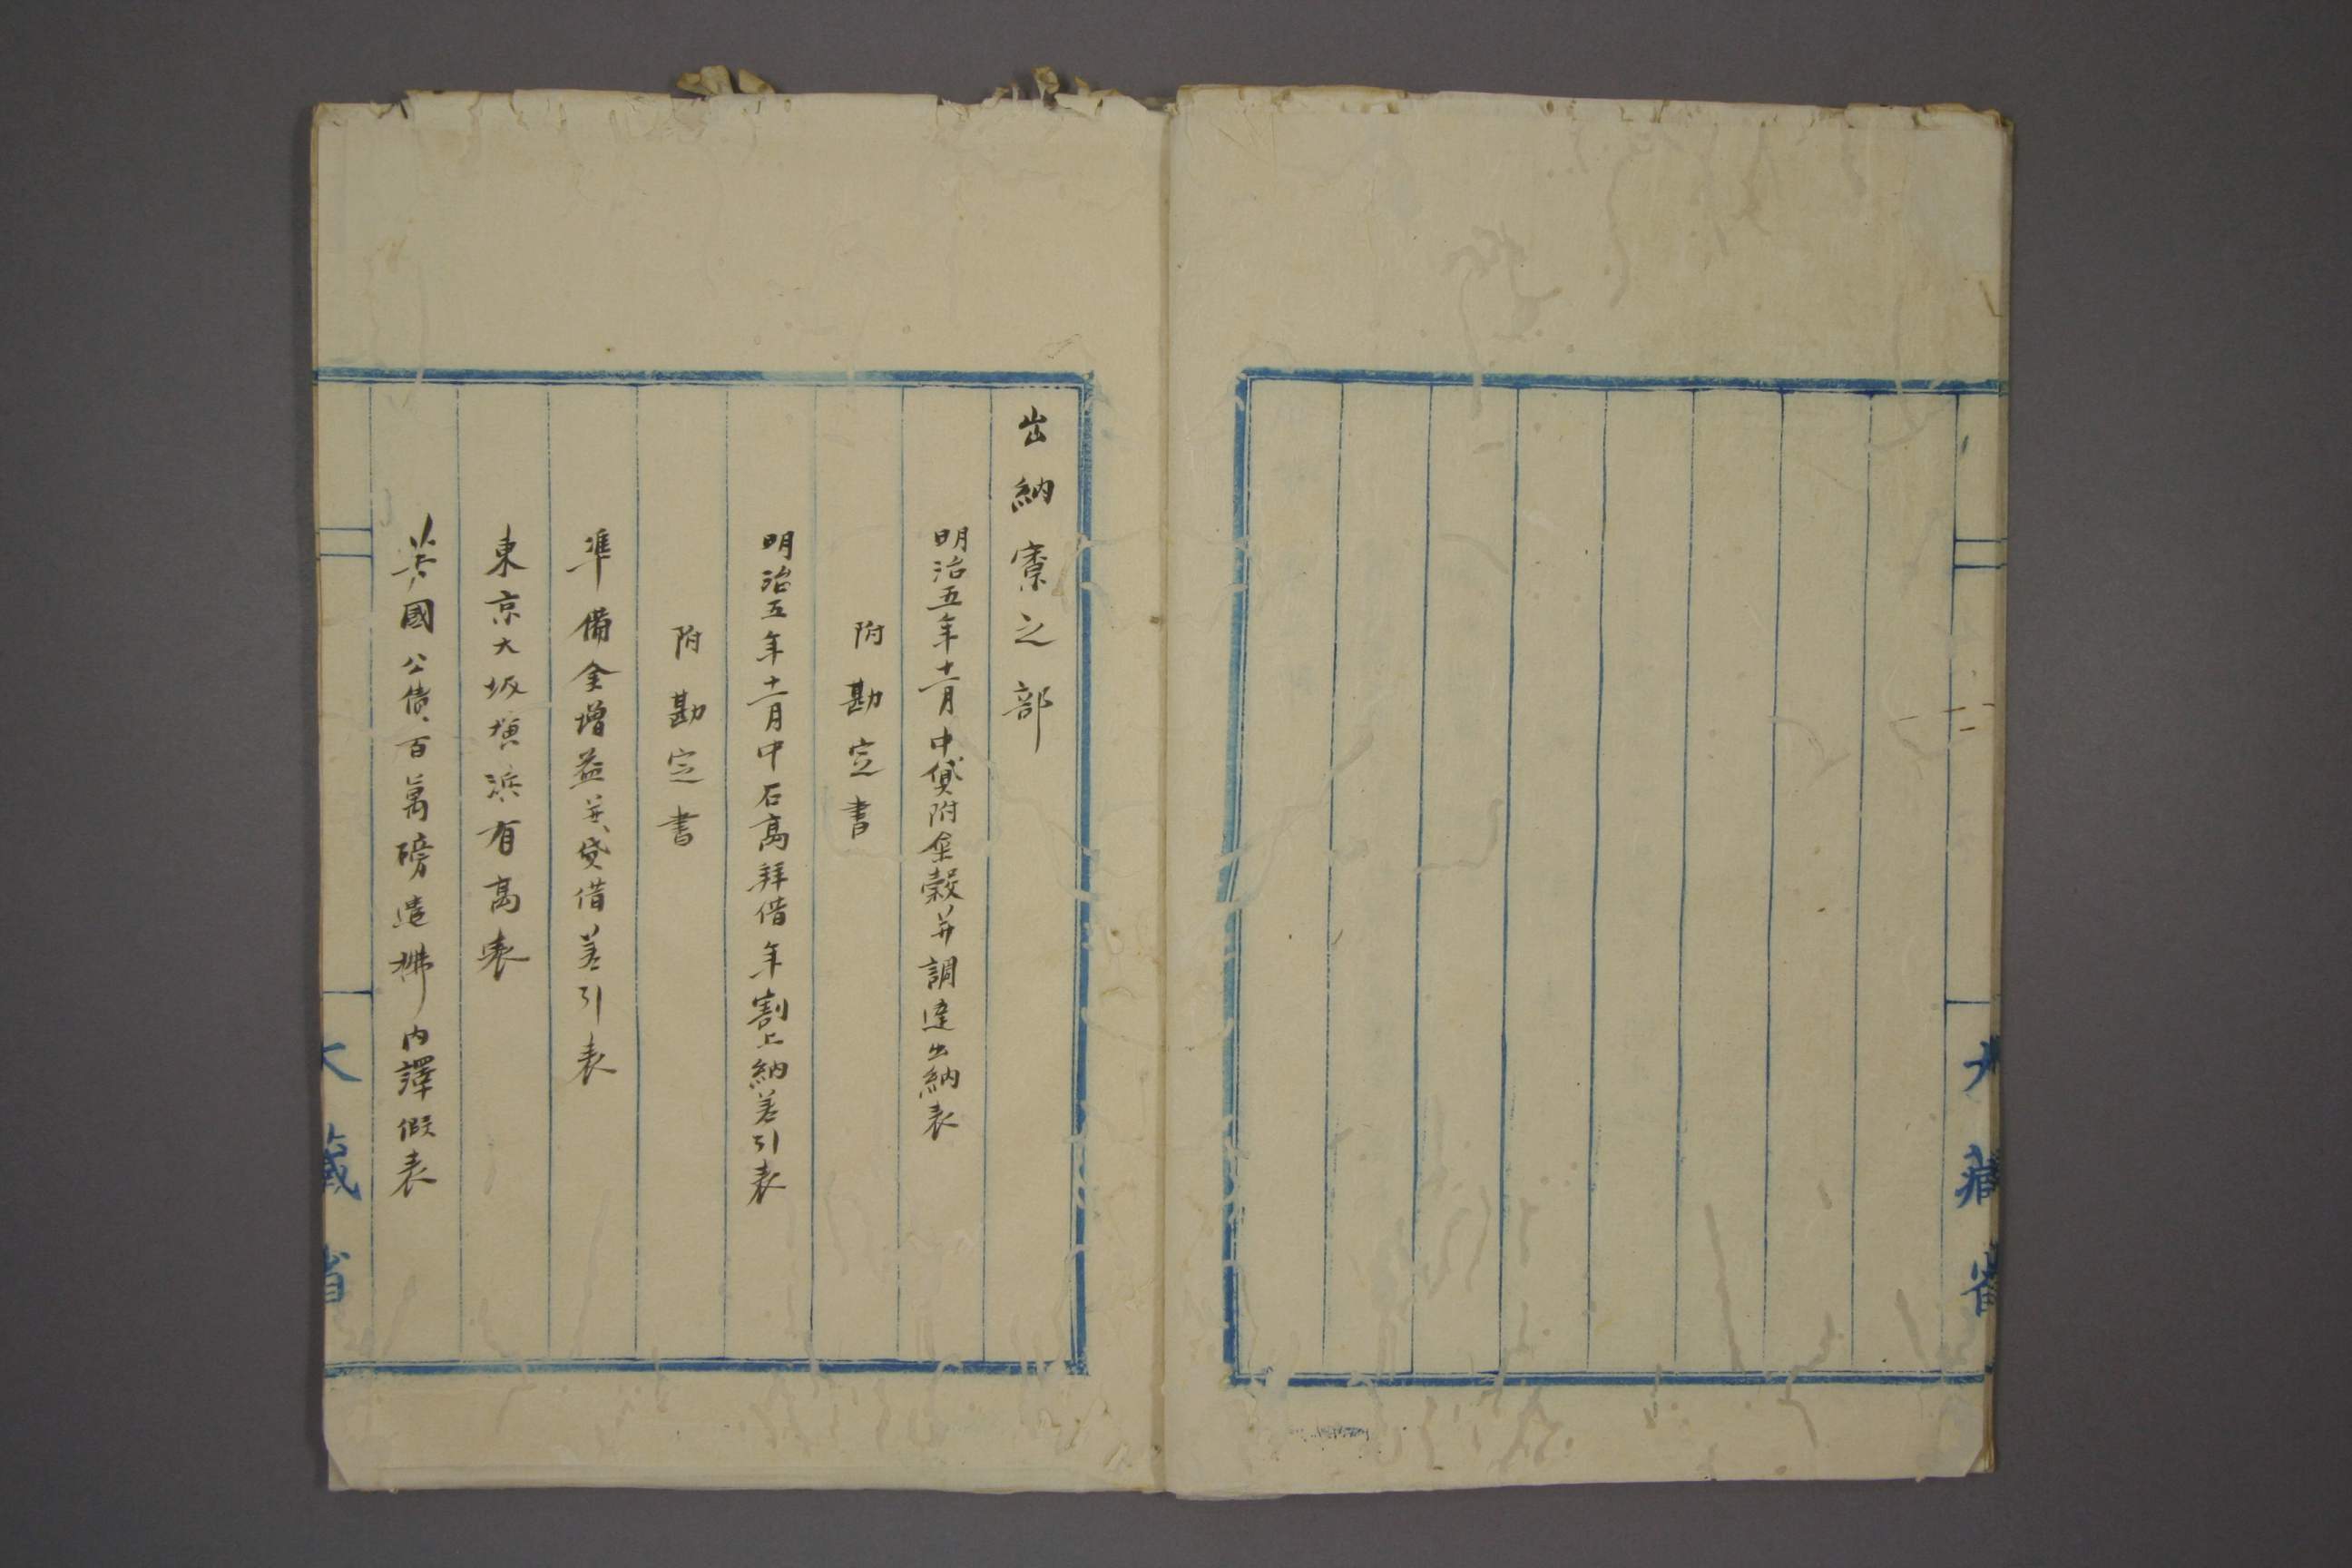 大藏省
出納寮之部
明治五年十二月中貸附金穀并調達出納表
附勘定書
明治五年十二月中石高拜借年割上納差引表
附勘定書
準備金增益并貸借差引表
東京大坂橫浜有高表
英國公債百萬磅遣拂内譯假表
大藏省